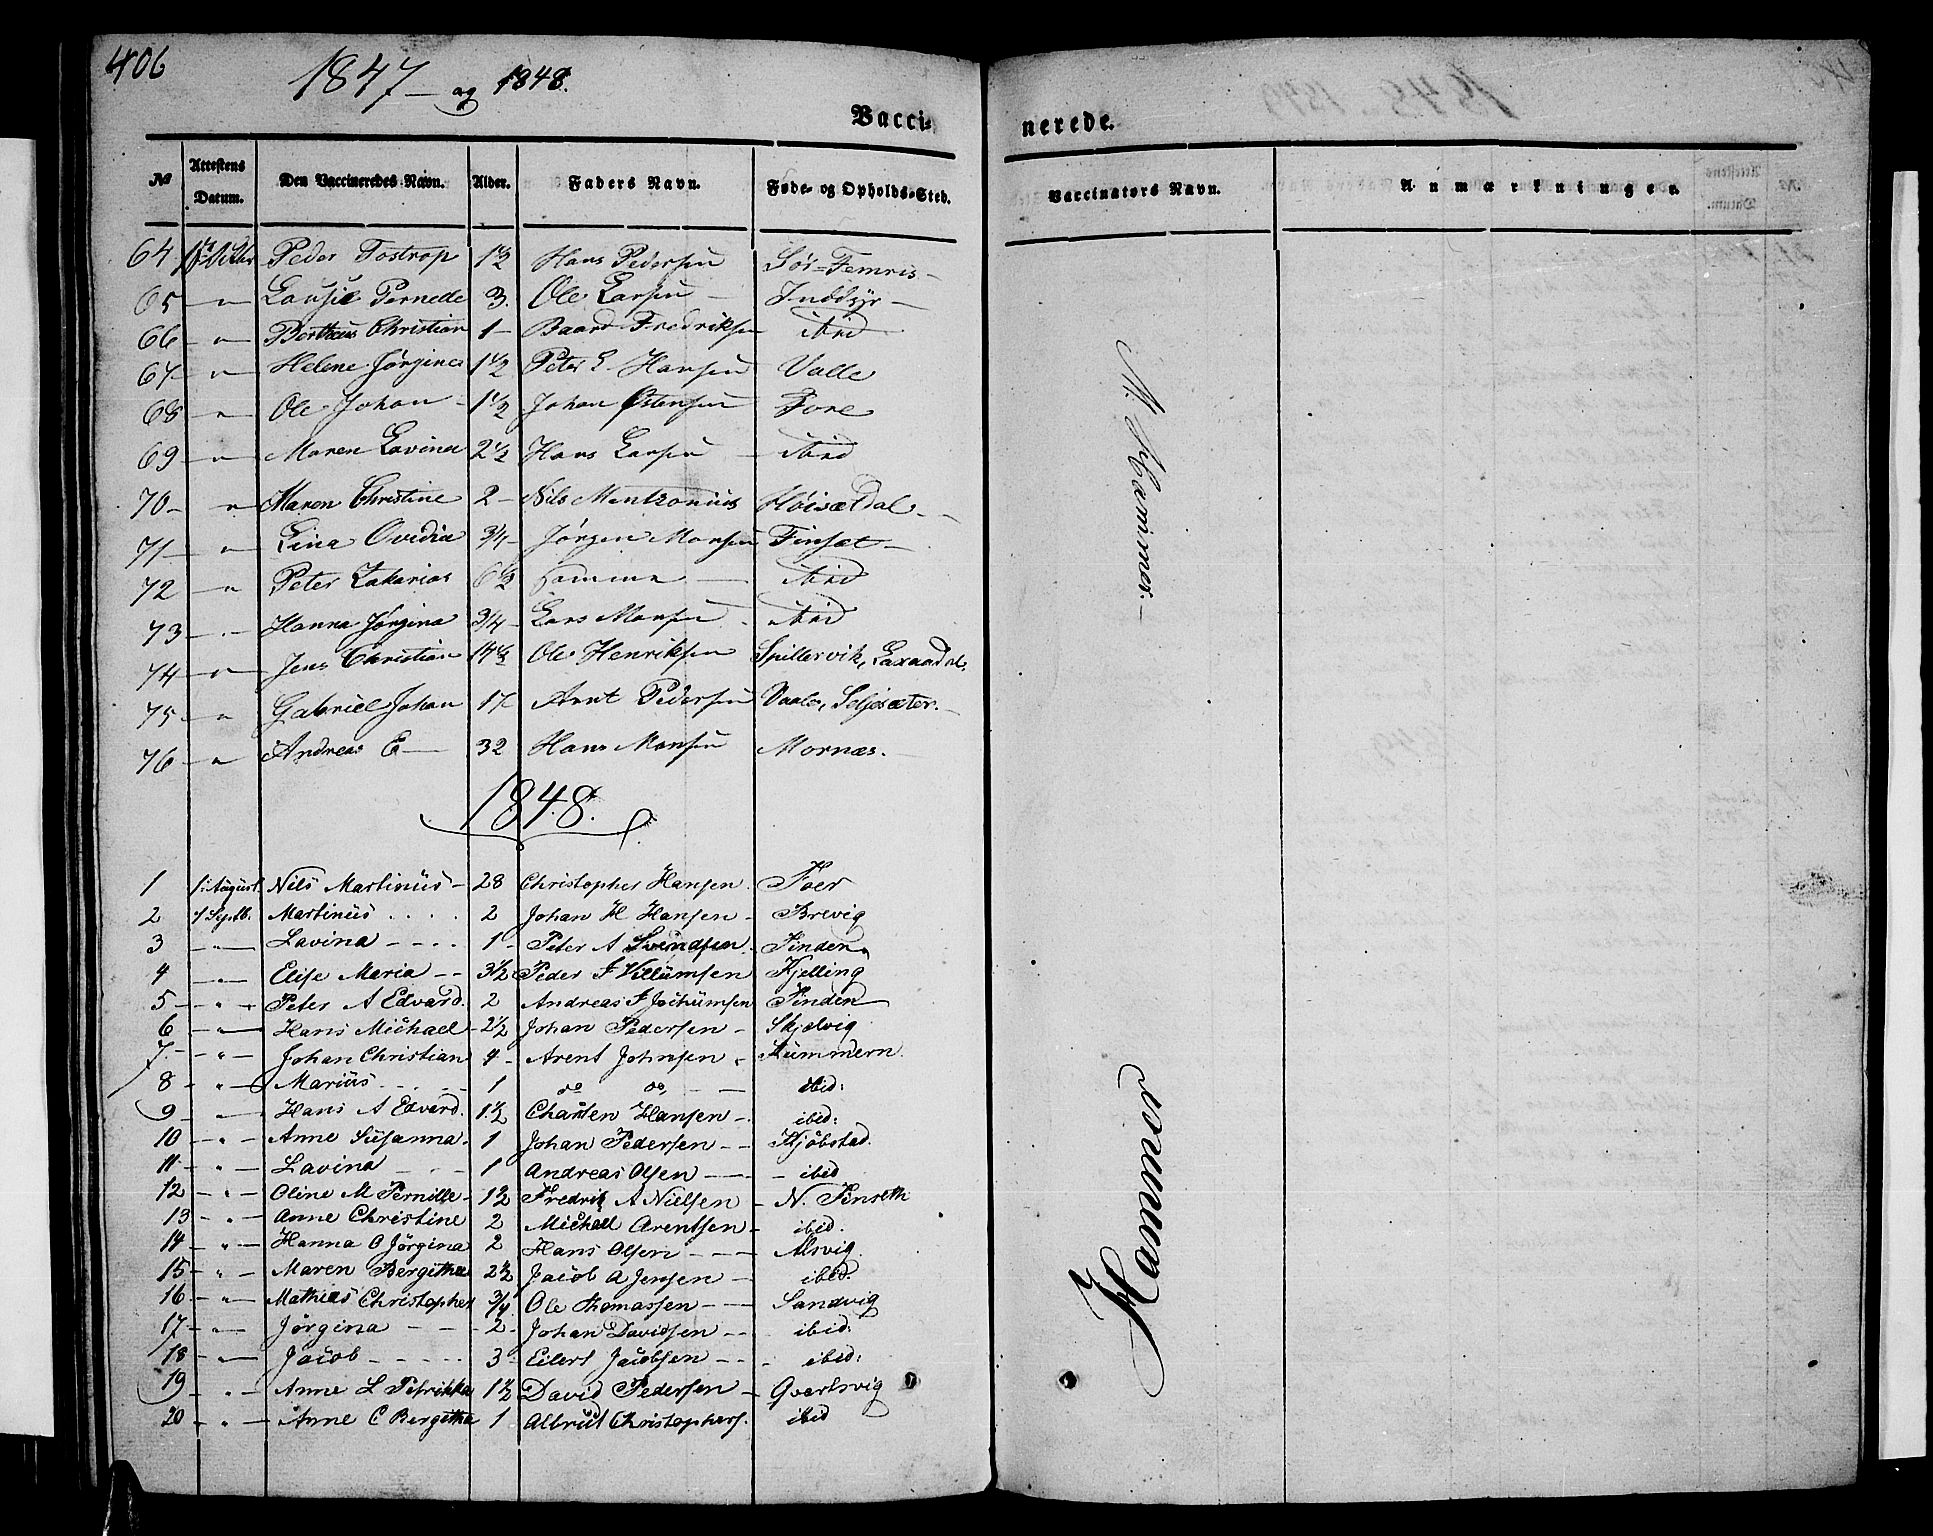 406
1847 — og 1848.
Vacci- nerede.
No Attestens Datum. Den Vaccineredes Navn. Alder. Faders Navn. Føde- og Opholds-Sted. Vaccinators Navn. Anmærkninger.
64 Peder Tostrop 1 1/2 Hans Pedersen Sør-Femris
65 — " Pernelle 3. Ole Larsen Inddyr
66 — " — Bertheus Christian 1 — Baard Fredriksen ibid
67 — " Helene Jørgine 1 1/2 Peter E Hansen Valle
68 " Ole Johan 1 1/2 Johan Østensen Fore
69 — " — Maren Lavina 2 1/2 Hans Larsen — ibid
70 — " Maren Christine 2 — Nils Mentzonius
71 — " Lina Ovidia 3/4 Jørgen Monsen Finset
72 — " Peter Zakarias 6 1/2 Samme — ibid
73 — " — Hanna Jørgina 3/4 Lars Monsen ibid
74 — " Jens Christian 14 1/2 Ole Henriksen Spillervik, Laxaadal.
75 — " Gabriel Johan 17 Arnt Pedersen Vaale, Seljesæter.
76 — " Andreas E — 32 Hans Monsen Mornæs.
1848.
1 1. August Nils Martinus — 28 Christopher Hansen. Foer
2 1 Septb. Martinus 2 Johan H Hansen — Brevig
3 — " — Lavina 1 — Peter A Svendsen Finden
4 — " — Elise Maria — 3 1/2 Peder J Villumsen Kjelling
5 — " — Peter A Edvard. 2 Andreas J Jochumsen Finden
6 — " — Hans Michael — 2 1/2 Johan Pedersen — Skjelvig
7 — " — Johan Christian 4 — Arent Johnsen Kummern.
8 — " — Marius 1 do do, — ibid:
9 — " — Hans A Edvard. 1 1/2 Hansen — ibid:
10 — " — Anne Susanna. 1 Johan Pedersen — Kjøbstad.
11 — " — Lavina 1 Andreas Olsen — ibid
12 — " — Oline M Pernille — 1 1/2 Fredrik A Nielsen — N. Finseth
13 — " — Anne Christine 2 Michael Arentsen — ibid.
14 — " — Hanna O Jørgina 2 Hans Olsen — Alsvig.
15 — " — Maren Bergitha 2 1/2 Jacob A Jensen — ibid.
16 — " — Mathias Christopher 3/4 Ole Thomassen — Sandvig
17 — " — Jørgina 2 — Johan Davidsen — ibid:
18 — " — Jacob 3 — Eilert Jacobsen — ibid:
19 — " — Anne L Petrikka 1 1/2 David Pedersen — Qvartsvig
20 — " — Anne C Bergitha 1 Albrikt Christophers. ibid
M. Hammer. —
Hammer